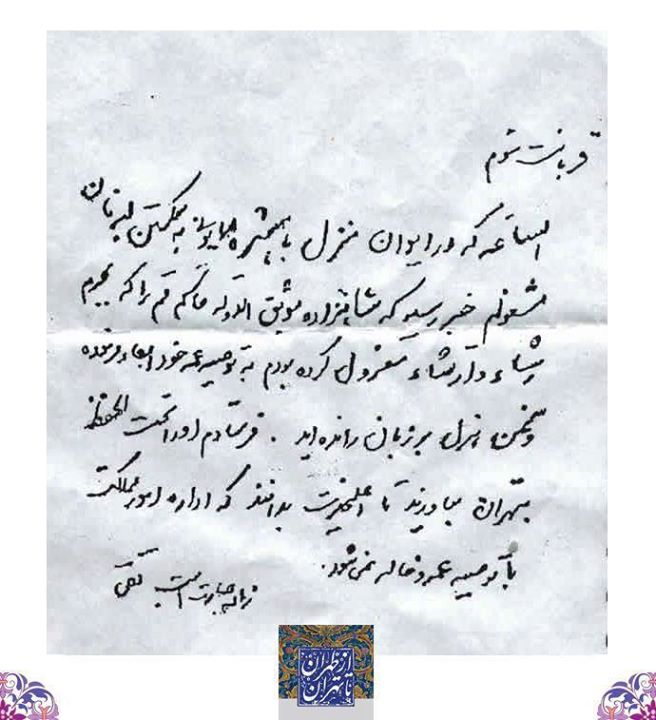 قربانت شوم
الساعه که در ایوان منزل با همشیره همایونی به شکستن لبه نان
مشغولم خبر رسید که شاهزاده موثق الدوله حاکم قم را که بجرم
رشاء و ارتشاء معزول کرده بودم به توصیه عمه خود ابقاء فرموده
و سخن هزل بر زبان رانده اید . فرستادم اورا تحت الحفظ
بتهران بیاورند تا اعلیحضرت بدانند که اداره امور مملکت
با توصیه عمه و خاله نمی شود.
زیاده جسارت است تقی
از طهران
تا تهران